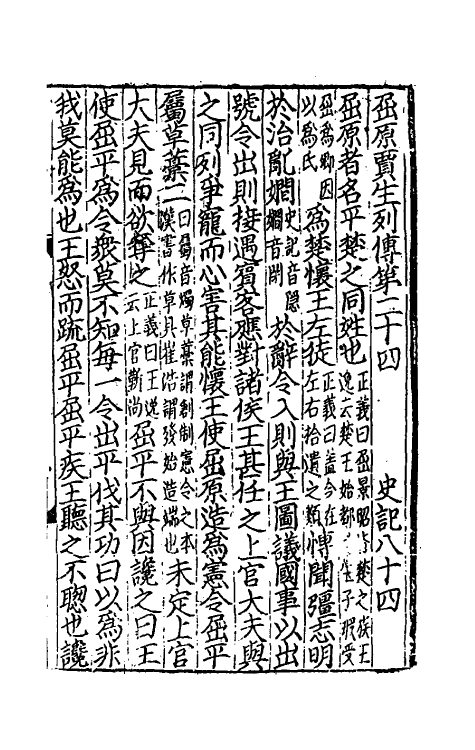 屈原賈生列傳第二十四 史記八十四
屈原者名平楚之同姓也正義曰屈景昭皆楚之族王逸云楚王始都生子瑕受
屈爲卿因以爲氏爲楚懷王左徒正義曰盖今在左右拾遺之類博聞彊志明
於治亂嫺史記音隱嫺音閑於辭令入則與王圖議國事以出
號令出則接遇賓客應對諸侯王甚任之上官大夫與
之同列爭寵而心害其能懷王使屈原造爲憲令屈平
屬草藁曰屬音燭草藁謂創制憲令之本漢書作草具崔浩謂發始造端也未定上官
大夫見而欲奪之正義曰王逸云上官靳尚屈平不與因讒之曰王
使屈平爲令衆莫不知每一令出平伐其功曰以爲非
我莫能爲也王怒而疏屈平屈平疾王聽之不聰也讒